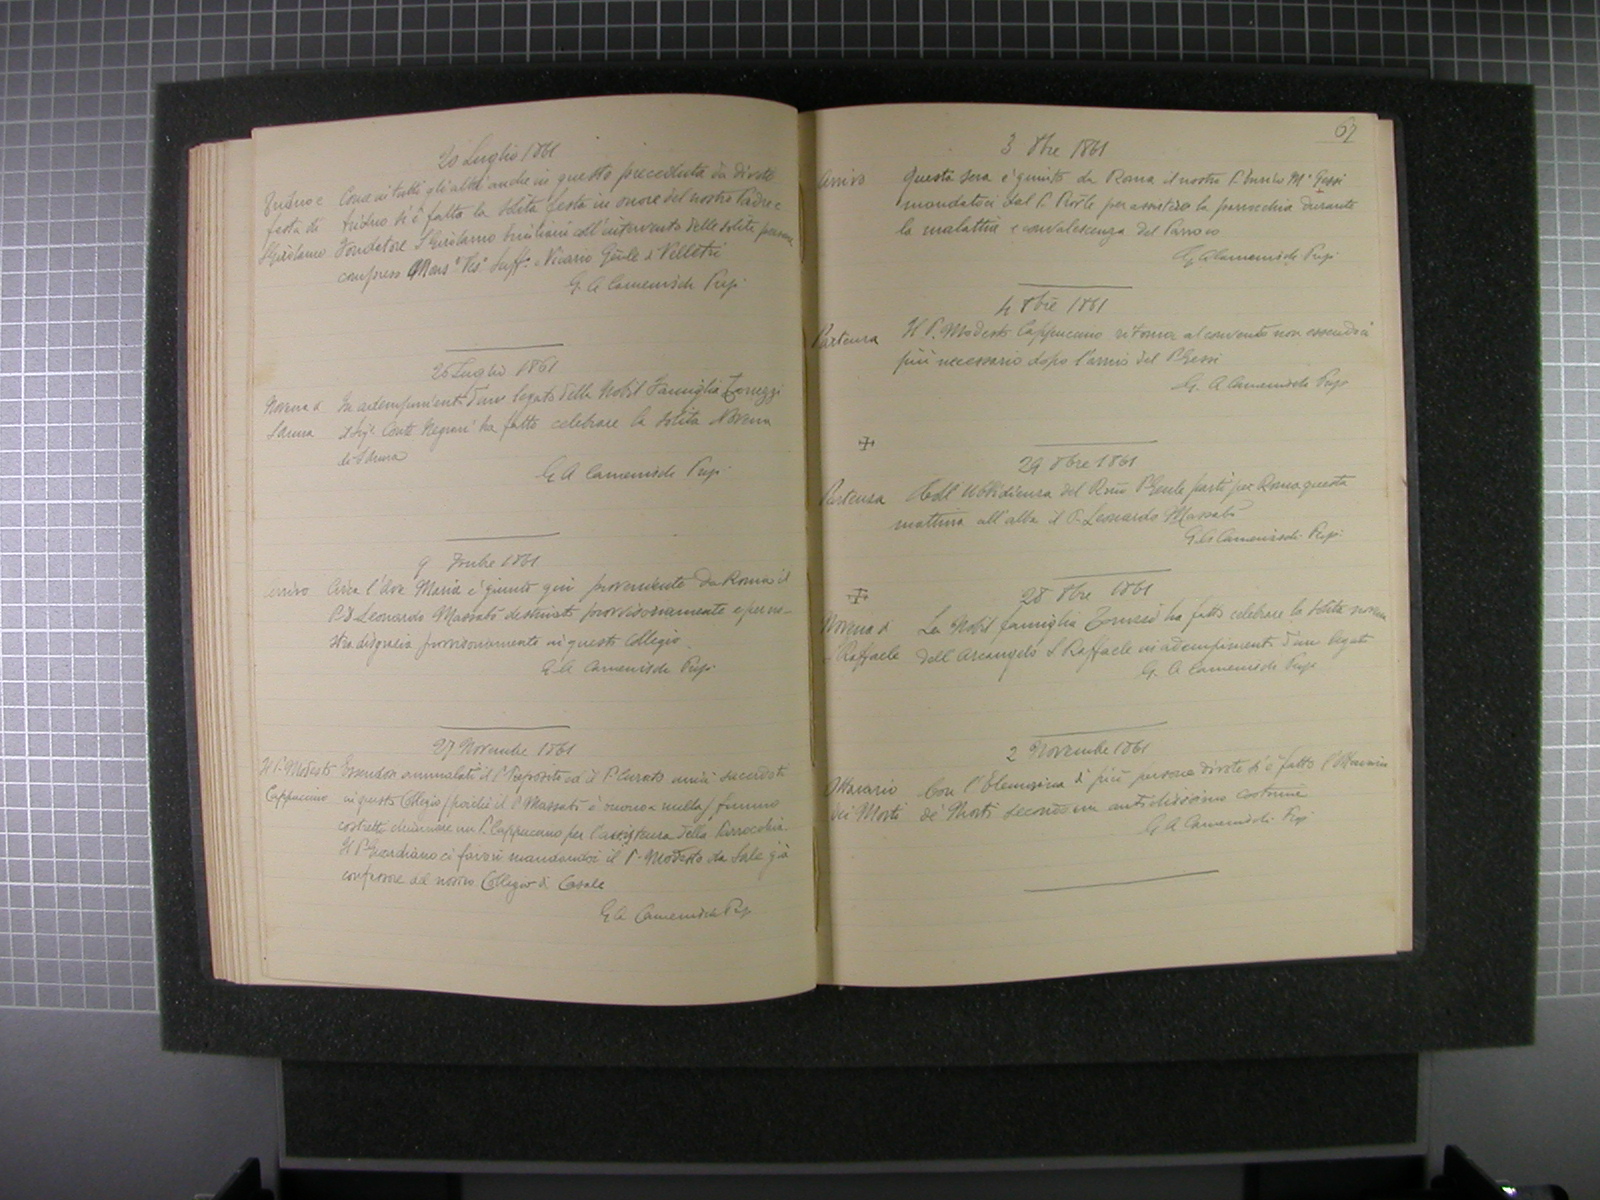 20 Luglio 1861
Triduo e Come in tutti gli altri anche in questo preceduta da divoto
festa di triduo si è fatta la solita festa in onore del nostro Padre e
S Girolamo Fondatore S Girolamo Emiliani coll'intervento delle solite persone
compreso Mons.e Ves.o Suff.o e Vicario Gnle di Velletri
G. A Camenisch Prep.
26 Luglio 1861
Novena di In adempimento d'un legato della Nobil Famiglia Toruzzi
S Anna il Sig.r Conte Negroni ha fatto celebrare la solita Novena
di S Anna
G A Camenisch Prep.
9 1861
Arrivo Circa l'Ave Maria è giunto qui proveniente da Roma il
P. D Leonardo Massabò destinato provvisoriamente e per no-
stra disgrazia provvisoriamente in questo Collegio.
G. A Camenisch Prep.
27 Novembre 1861
Il P. Modesto Essendosi ammalati il P. Preposito ed il P. Curato unici sacerdoti
Cappuccino in questo Collegio (poiché il P. Massabò è buono a nulla) fummo
costretti chiamare un P. Cappuccino per l'assistenza della Parrocchia.
Il P. Guardiano ci favorì mandandoci il P. Modesto da Sale già
confessore del nostro Collegio di Casale
G A Camenisch Prep.
67
3 8bre 1861
Arrivo Questa sera è giunto da Roma il nostro P. Enrico M.a Gessi
mandatoci dal P. per assistere la parrocchia durante
la malattia e convalescenza del Parroco
G. A Camenisch Prep.
4 8bre 1861
Partenza Il P. Modesto Cappuccino ritorna al convento non essendoci
più necessario dopo l'arrivo del P Gessi
G. A Camenisch Prep
29 8bre 1861
Partenza Coll'Ubbidienza del Rmo P Gnle partì per Roma questa
mattina all'alba il P. Leonardo Massabò
G. A Camenisch Prep.
28 8bre 1861
Novena di La Nobil famiglia ha fatto celebrare la solita novena
S Raffaele dell'Arcangelo S Raffaele in adempimento d'un legato
G. A Camenisch Prep
2 Novembre 1861
Ottavario Con l'Elemosina di più persone divote si è fatto l'Ottavario
dei Morti de' Morti secondo un antichissimo costume
G A Camenisch. Prep